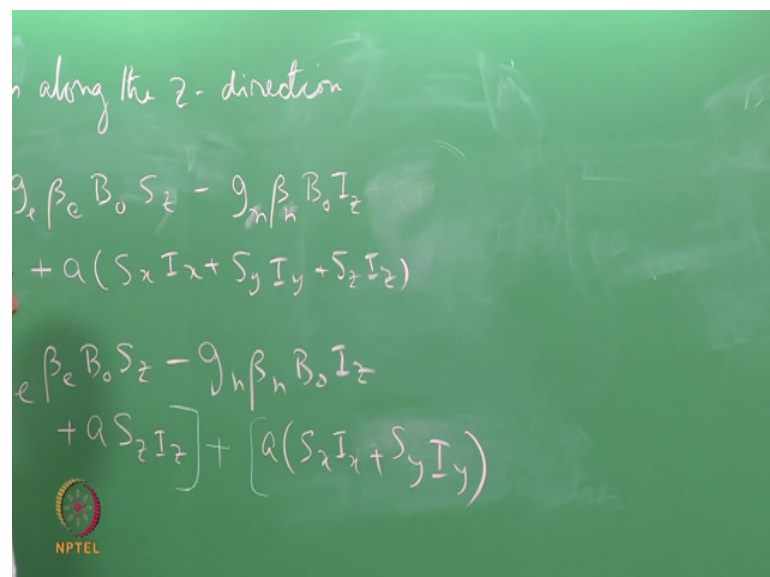 n along the z- direction
gₑ βₑ B₀ S_z - gₙ βₙ B₀ I_z
+ a(SₓIₓ + S_y I_y + S_z I_z)
ₑ βₑ B₀ S_z - gₙ βₙ B₀ I_z
+ a S_z I_z] + [a(SₓIₓ + S_y I_y)
NPTEL